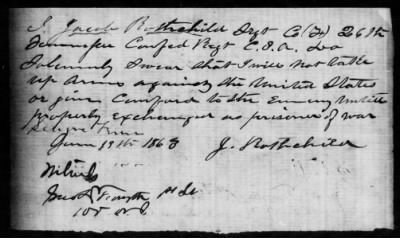 I, Jacob Rothschild Sergt Co (F) 26th
Tennessee Confed Regt C.S.A. do
Solemnly Swear that I will not take
up Arms against the United States
or give Comford to the Enemy untill
properly exchanged as prisoner of war
June 19th 1863
J. Rothschild